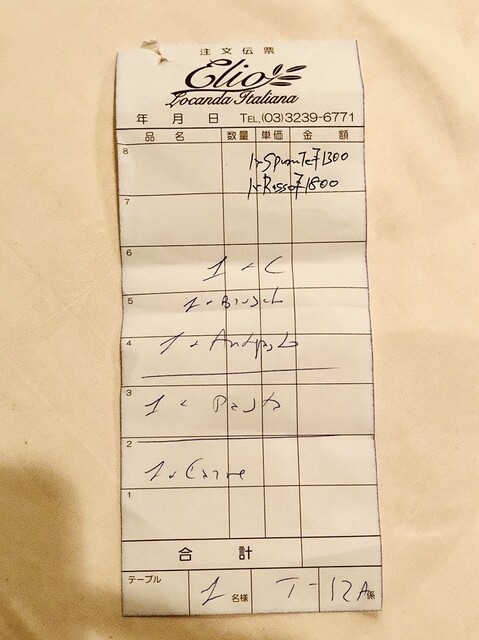 注文伝票
Elio
Locanda Italiana
年 月 日 TEL.(03)3239-6771
品名 数量 単価 金額
8
1xSpumante 1300
1xRosso 1800
7
6
1 x C
5
1 x Brusch
4
1 x Antipasto
3
1 x Pasta
2
1 x Carne
1
合計
テーブル 1名様 T- 12A係